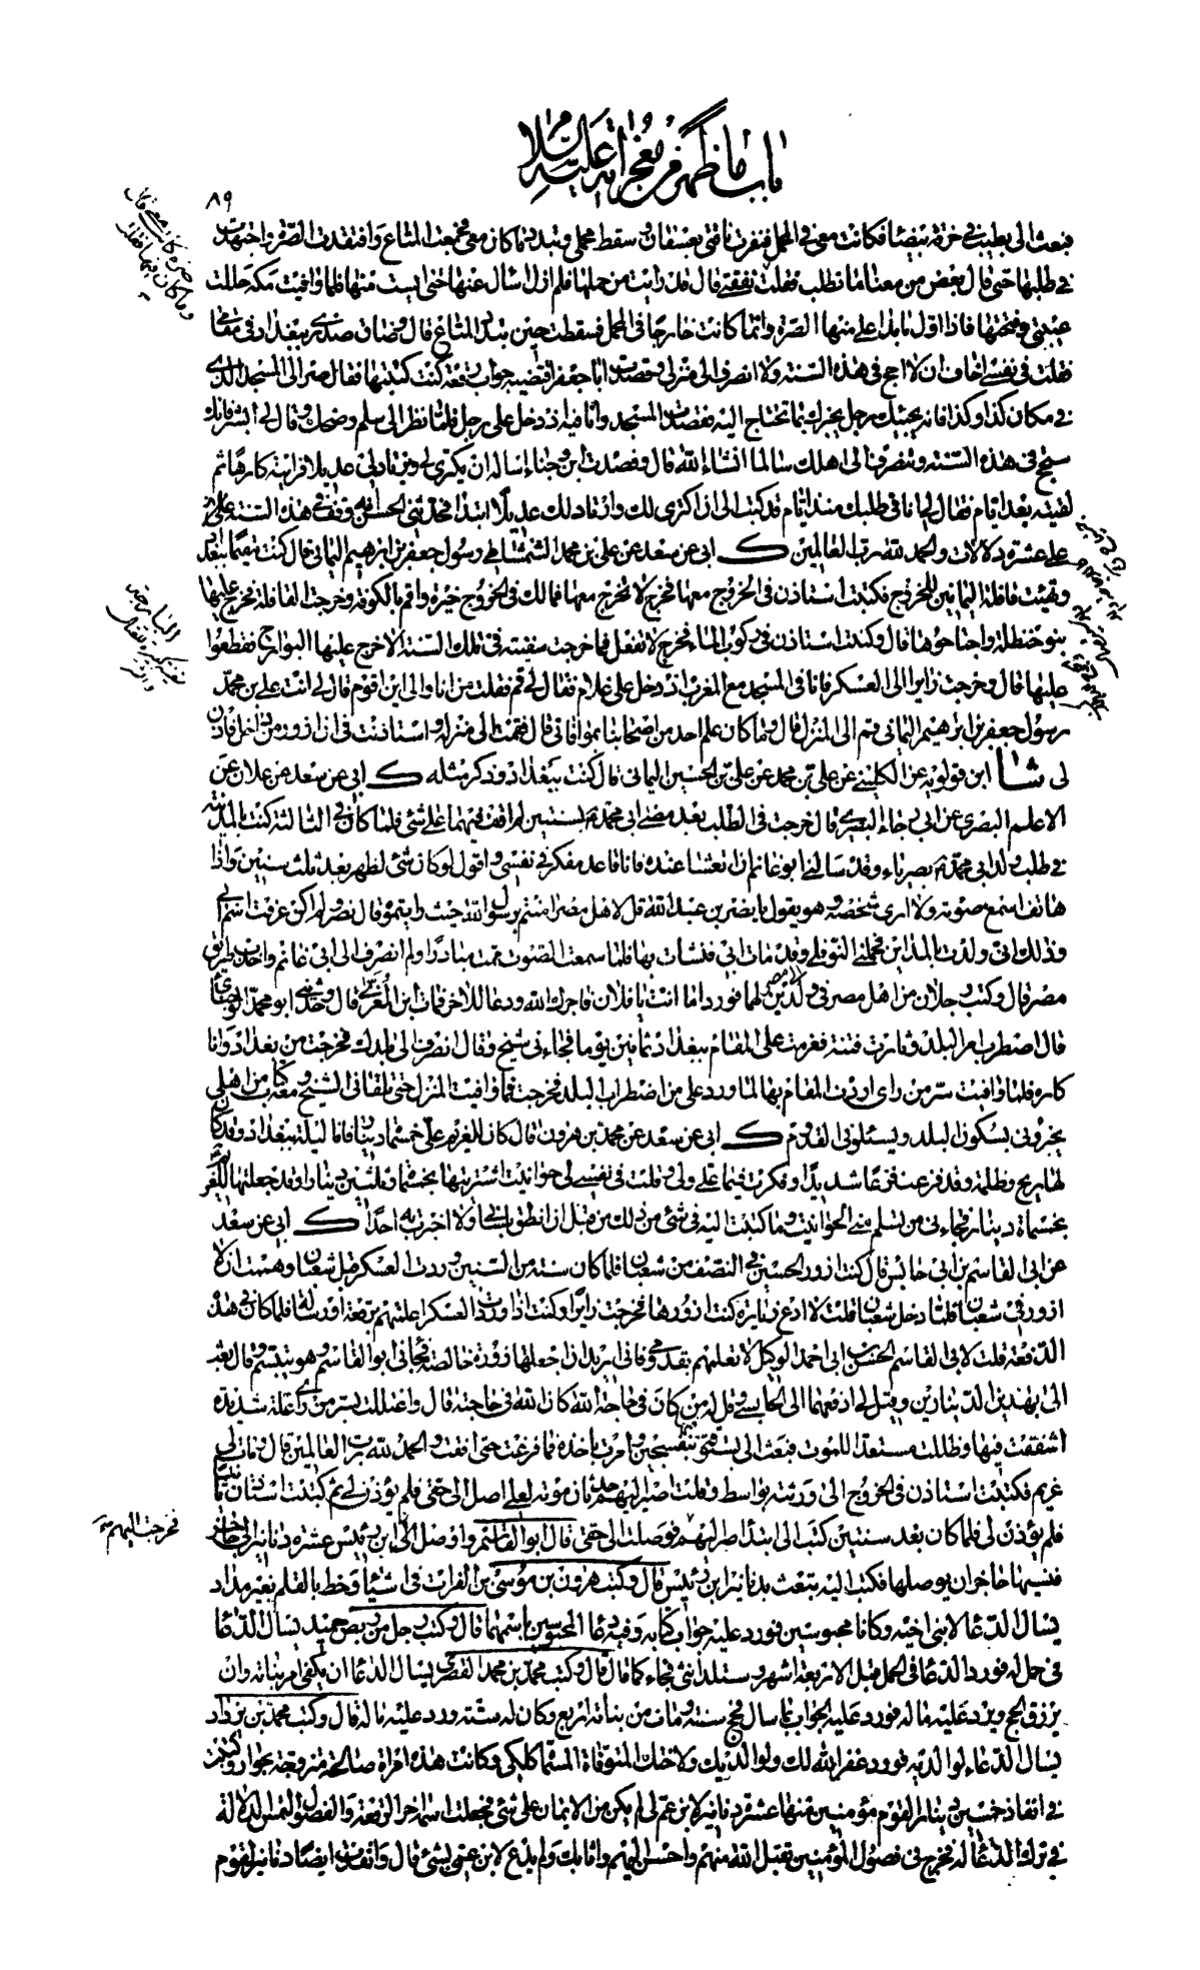 باب ما ظهر من معجزاته عليه السلام
٨٩
فبعث الى بطيب في خرقة بيضاء فكانت معي في المحمل فنفرت ناقتي بعسفان وسقط محملي وتبدد ما كان معي فجمعت المتاع وافتقدت الصرة واجتهدت
في طلبها حتى قال بعض من معنا ما تطلب فقلت صرة كانت معي قال وما كان فيها فقلت نفقتي قال قد رايت من حملها فلم ازل اسال عنها حتى ايست منها فلما وافيت مكة حللت
عيبتي وفتحتها فاذا اول ما بدا علي منها الصرة وانما كانت خارجا في المحمل فسقطت حين تبدد المتاع قال وضاق صدري ببغداد في مقامي
فقلت في نفسي اخاف ان لا احج في هذه السنة ولا انصرف الى منزلي وقصدت ابا جعفر اقتضيه جواب رقعة كنت كتبتها فقال صر الى المسجد الذي
في مكان كذا وكذا فانه يجيئك رجل يخبرك بما تحتاج اليه فقصدت المسجد وانا فيه اذ دخل علي رجل فلما نظر الي سلم وضحك وقال لي ابشر فانك
ستحج في هذه السنة وتنصرف الى اهلك سالما انشاء الله قال وقصدت ابن وجناء اساله ان يكتري لي ويرتاد لي عديلا فرايته كارها ثم
لقيته بعد ايام فقال لي انا في طلبك منذ ايام قد كتب الي ان اكتري لك وارتاد لك عديلا ابتداء فحدثني الحسن انه وقف في هذه السنة على
على عشرة دلالات والحمد لله رب العالمين ك ابي عن سعد عن علي بن محمد الشمشاطي رسول جعفر بن ابرهيم اليماني قال كنت مقيما ببغداد
وتهيئت قافلة اليمانيين للخروج فكتبت استاذن في الخروج معها فخرج لا تخرج معها فما لك في الخروج خيرة واقم بالكوفة وخرجت القافلة فخرج عليها
بنو حنظلة واجتاحوها قال وكتبت استاذن في ركوب الماء فخرج لا تفعل فما خرجت سفينة في تلك السنة الا خرج عليها البوارج فقطعوا
عليها قال وخرجت زايرا الى العسكر فانا في المسجد مع المغرب اذ دخل علي غلام فقال لي قم فقلت من انا والى اين اقوم قال لي انت علي بن محمد
رسول جعفر بن ابرهيم اليماني قم الى المنزل قال وما كان علم احد من اصحابنا بموافاتي قال فقمت الى منزله واستاذنت في ان ازور من داخل فاذن
لي شا ابن قولويه عن الكليني عن علي بن محمد عن علي بن الحسين اليماني قال كنت ببغداد وذكر مثله ك ابي عن سعد عن علان عن
الاعلم البصري عن ابي رجاء البصري قال خرجت في الطلب بعد مضي ابي محمد بسنتين لم اقف فيهما على شئ فلما كان في الثالثة كنت بالمدينة
في طلب ولد ابي محمد بصرياء وقد سالني ابو غانم ان اتعشى عنده فانا قاعد مفكر في نفسي واقول لو كان شئ لظهر بعد ثلث سنين واذا
هاتف اسمع صوته ولا ارى شخصه وهو يقول يا نصر بن عبد الله قل لاهل مصر امنتم برسول الله حيث رايتموه قال نصر ولم اكن عرفت اسم ابي
وذلك اني ولدت بالمداين فحملني النوفلي وقد مات ابي فنشات بها فلما سمعت الصوت قمت مبادرا ولم انصرف الى ابي غانم واخذت طريق
مصر قال وكتب رجلان من اهل مصر في ولدين لهما فورد اما انت يا فلان فاجرك الله ودعا للاخر فمات ابن المعزى قال وحدثني ابو محمد الوجناني
قال اضطرب امر البلد وثارت فتنة فعزمت على المقام ببغداد ثمانين يوما فجاءني شيخ وقال انصرف الى بلدك فخرجت من بغداد وانا
كاره فلما وافيت سر من راى اردت المقام بها لما ورد علي من اضطراب البلد فخرجت فما وافيت المنزل حتى تلقاني الشيخ ومعه كتاب من اهلي
يخبروني بسكون البلد ويسئلوني القدوم ك ابي عن سعد عن محمد بن هرون قال كان للغريم علي خمسماة دينار فانا ليلة ببغداد وقد كان
لها ريح وظلمة وقد فزعت فزعا شديدا وفكرت فيما علي ولي وقلت في نفسي لي حوانيت اشتريتها بخمسماة وثلثين دينارا وقد جعلتها للغريم
بخمسماة دينار فجاءني من تسلم مني الحوانيت وما كتبت اليه في شئ من ذلك من قبل ان انطق بلساني ولا اخبرت به احدا ك ابي عن سعد
عن ابي القاسم بن ابي حابس قال كنت ازور الحسين في النصف من شعبان فلما كان سنة من السنين وردت العسكر قبل شعبان وهممت ان لا
ازور في شعبان فلما دخل شعبان قلت لا ادع زيارة كنت ازورها فخرجت زايرا وكنت اذا وردت العسكر اعلمتهم برقعة او رسالة فلما كان في هذه
الدفعة قلت لابي القاسم الحسن بن ابي احمد الوكيل لا تعلمهم بقدومي فاني اريد ان اجعلها زورة خالصة فجاءني ابو القاسم وهو يتبسم وقال بعث
الي بهذين الدينارين وقيل لي ادفعهما الى الحابسي وقل له من كان في حاجة الله كان الله في حاجته قال واعتللت بسر من راى علة شديدة
اشفقت فيها وظللت مستعدا للموت فبعث الي بستوقة فيها بنفسجين وامرت باخذه فما فرغت حتى افقت والحمد لله رب العالمين قال ومات لي
غريم فكتبت استاذن في الخروج الى ورثته بواسط وقلت اصير اليهم حدثان موته لعلي اصل الى حقي فلم يؤذن لي ثم كتبت استاذن ثانيا
فلم يؤذن لي فلما كان بعد سنتين كتب الي ابتداء صر اليهم فخرجت اليهم فوصلت الى حقي قال ابو القاسم واوصل ابن رئيس عشرة دنانير الى حاجز
فنسيها حاجز ان يوصلها فكتب اليه تبعث بدنانير ابن رئيس قال وكتب هرون بن موسى بن الفرات في اشياء وخط بالقلم بغير مداد
يسال الدعاء لابني اخيه وكانا محبوسين فورد عليه جواب كتابه وفيه دعاء المحبوسين باسمهما قال وكتب رجل من ربض حميد يسال الدعاء
في حمل له فورد الدعاء في الحمل قبل الاربعة اشهر وستلد انثى فجاء كما قال قال وكتب محمد بن محمد القصري يسال الدعاء ان يكفى امر بناته وان
يرزق الحج ويرد عليه ماله فورد عليه الجواب بما سال فحج من سنته ومات من بناته اربع وكان له ستة ورد عليه ماله قال وكتب محمد بن يزداد
يسال الدعاء لوالديه فورد غفر الله لك ولوالديك ولاختك المتوفاة المسماة كلكي وكانت هذه امراة صالحة متزوجة بجوار وكتبت
في انفاذ خمسين دينارا لقوم مؤمنين منها عشرة دنانير لابن عم لي لم يكن من الايمان على شئ فجعلت اسمه اخر الرقعة والفصول التمس الدلالة
في ترك الدعاء له فخرج في فصول المؤمنين تقبل الله منهم واحسن اليهم واثابك ولم يدع لابن عمي بشئ قال وانفذت ايضا دنانير لقوم